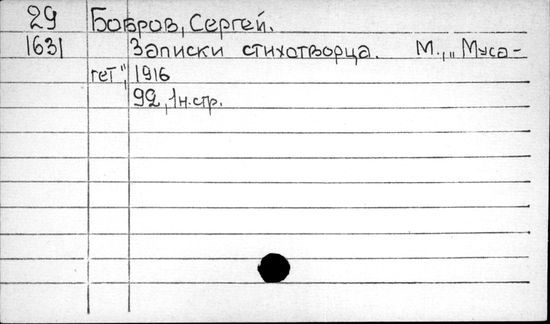 29 Бобров, Сергей.
1631 Записки стихотворца. М., „Муса-
гет", 1916
92, 1н.стр.